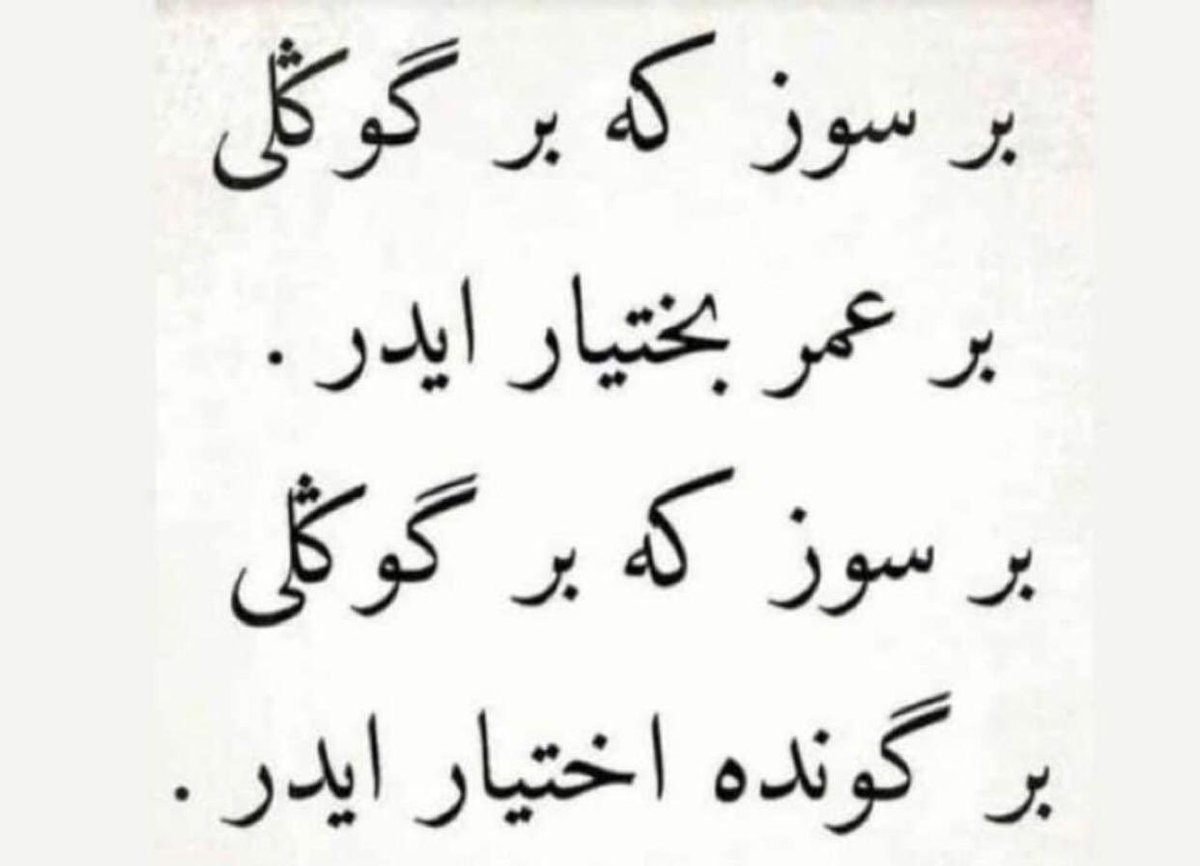 بر سوز كه بر گوڭلی
بر عمر بختیار ایدر .
بر سوز كه بر گوڭلی
بر گونده اختیار ایدر .